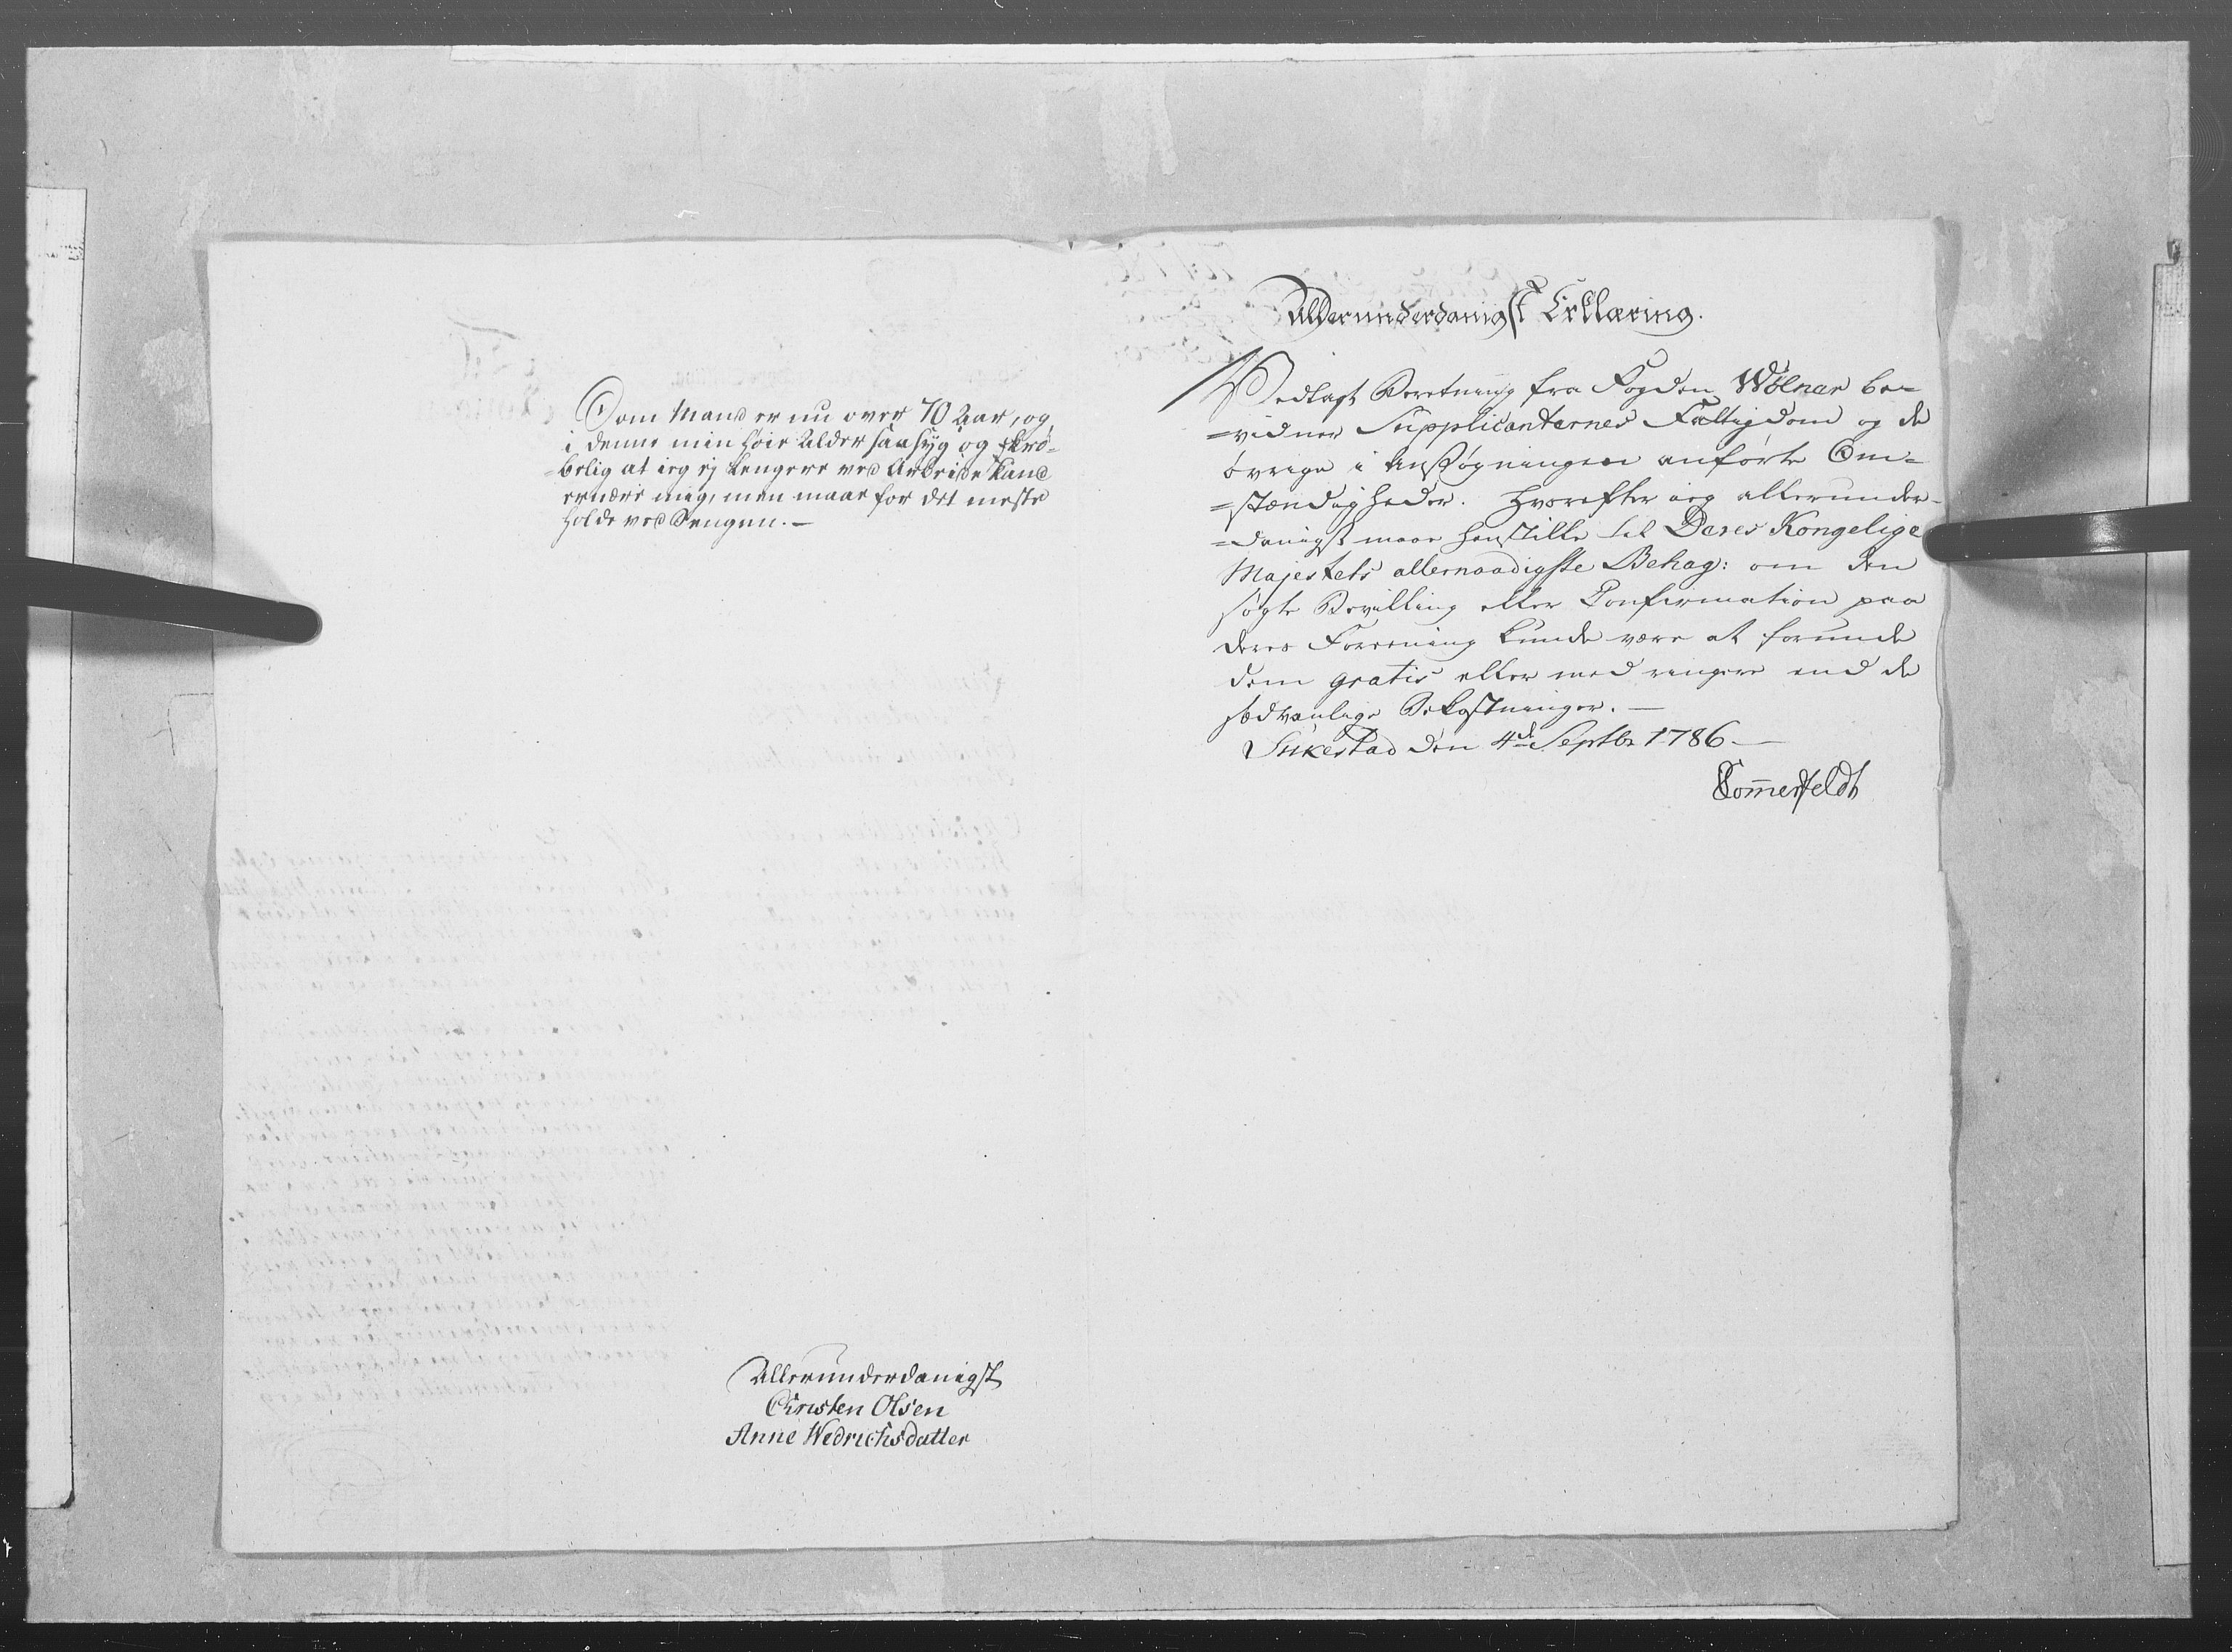 Som Mand er nu over 70 Aar, og
i denne min høie Alder saa syg og skrø-
-belig at ieg ej længere ved Arbeide kand
ernære mig, men maae for det meste
holde ved Sengen.-
Allerunderdanigst
Christen Olsen
Anne Wedrichsdatter
Allerunderdanigst Erklæring.
Vedlagt Beretning fra Fogden Wølner be-
-vidner Supplicanternes Fattigdom og de
øvrige i Ansøgningen anførte Om-
-stændigheder. Hvorefter ieg allerunder-
-danigst maae henstille til Deres Kongelige
Majestets allernaadigste Behag: om den
søgte Bevilling eller Confirmation paa
deres Foreening kunde være at forunde
dem gratis eller med ringere end de
sædvanlige Bekostninger.-
Sukestad den 4de Septbr 1786-
Sommerfeldt